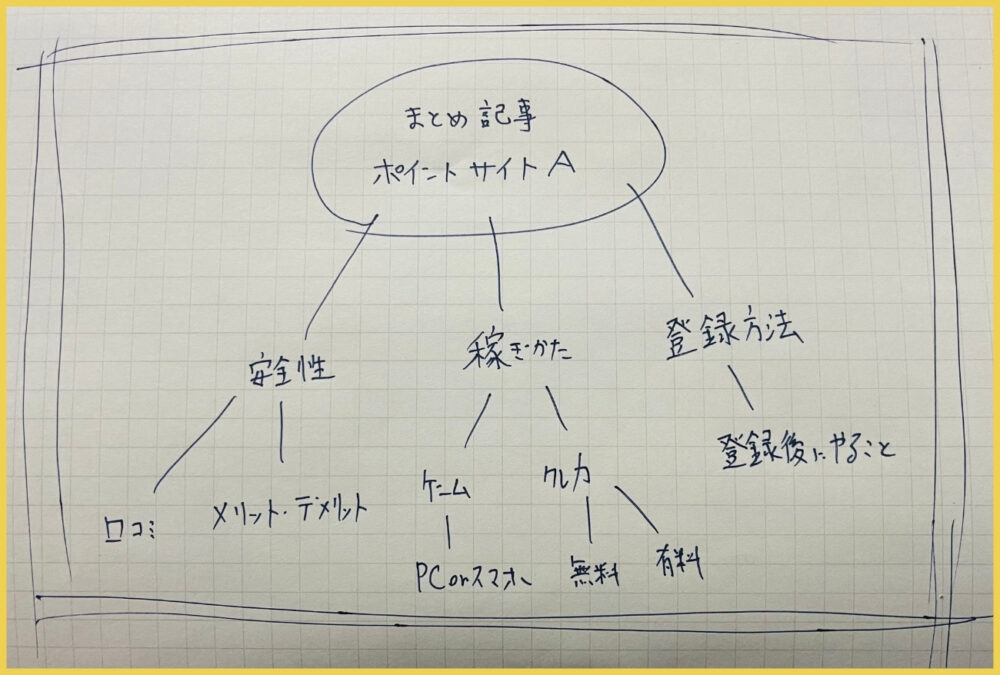 まとめ記事
ポイントサイトA
安全性
稼ぎかた
登録方法
口コミ
メリット・デメリット
ゲーム
クレカ
登録後にやること
PCorスマホ
無料
有料